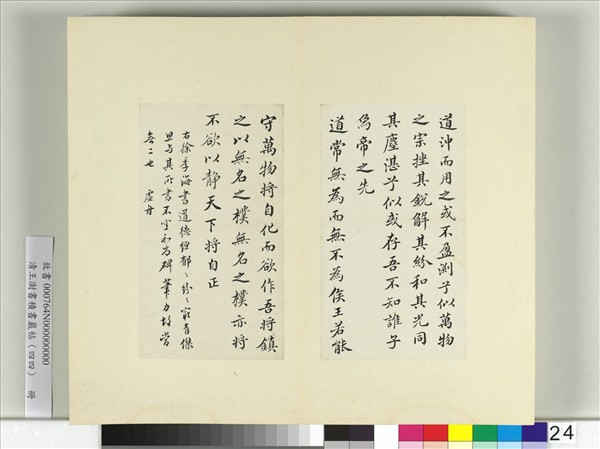 道沖而用之或不盈淵乎似萬物
之宗挫其銳解其紛和其光同
其塵湛乎似或存吾不知誰子
為帝之先
道常無為而無不為侯王若能
守萬物將自化而欲作吾將鎮
之以無名之樸無名之樸亦將
不欲以靜天下將自正
右徐季海書道德經
其所書不
無二也 虛舟
故書 000764N000000000
清王澍書積書巖帖(四四) 冊
24